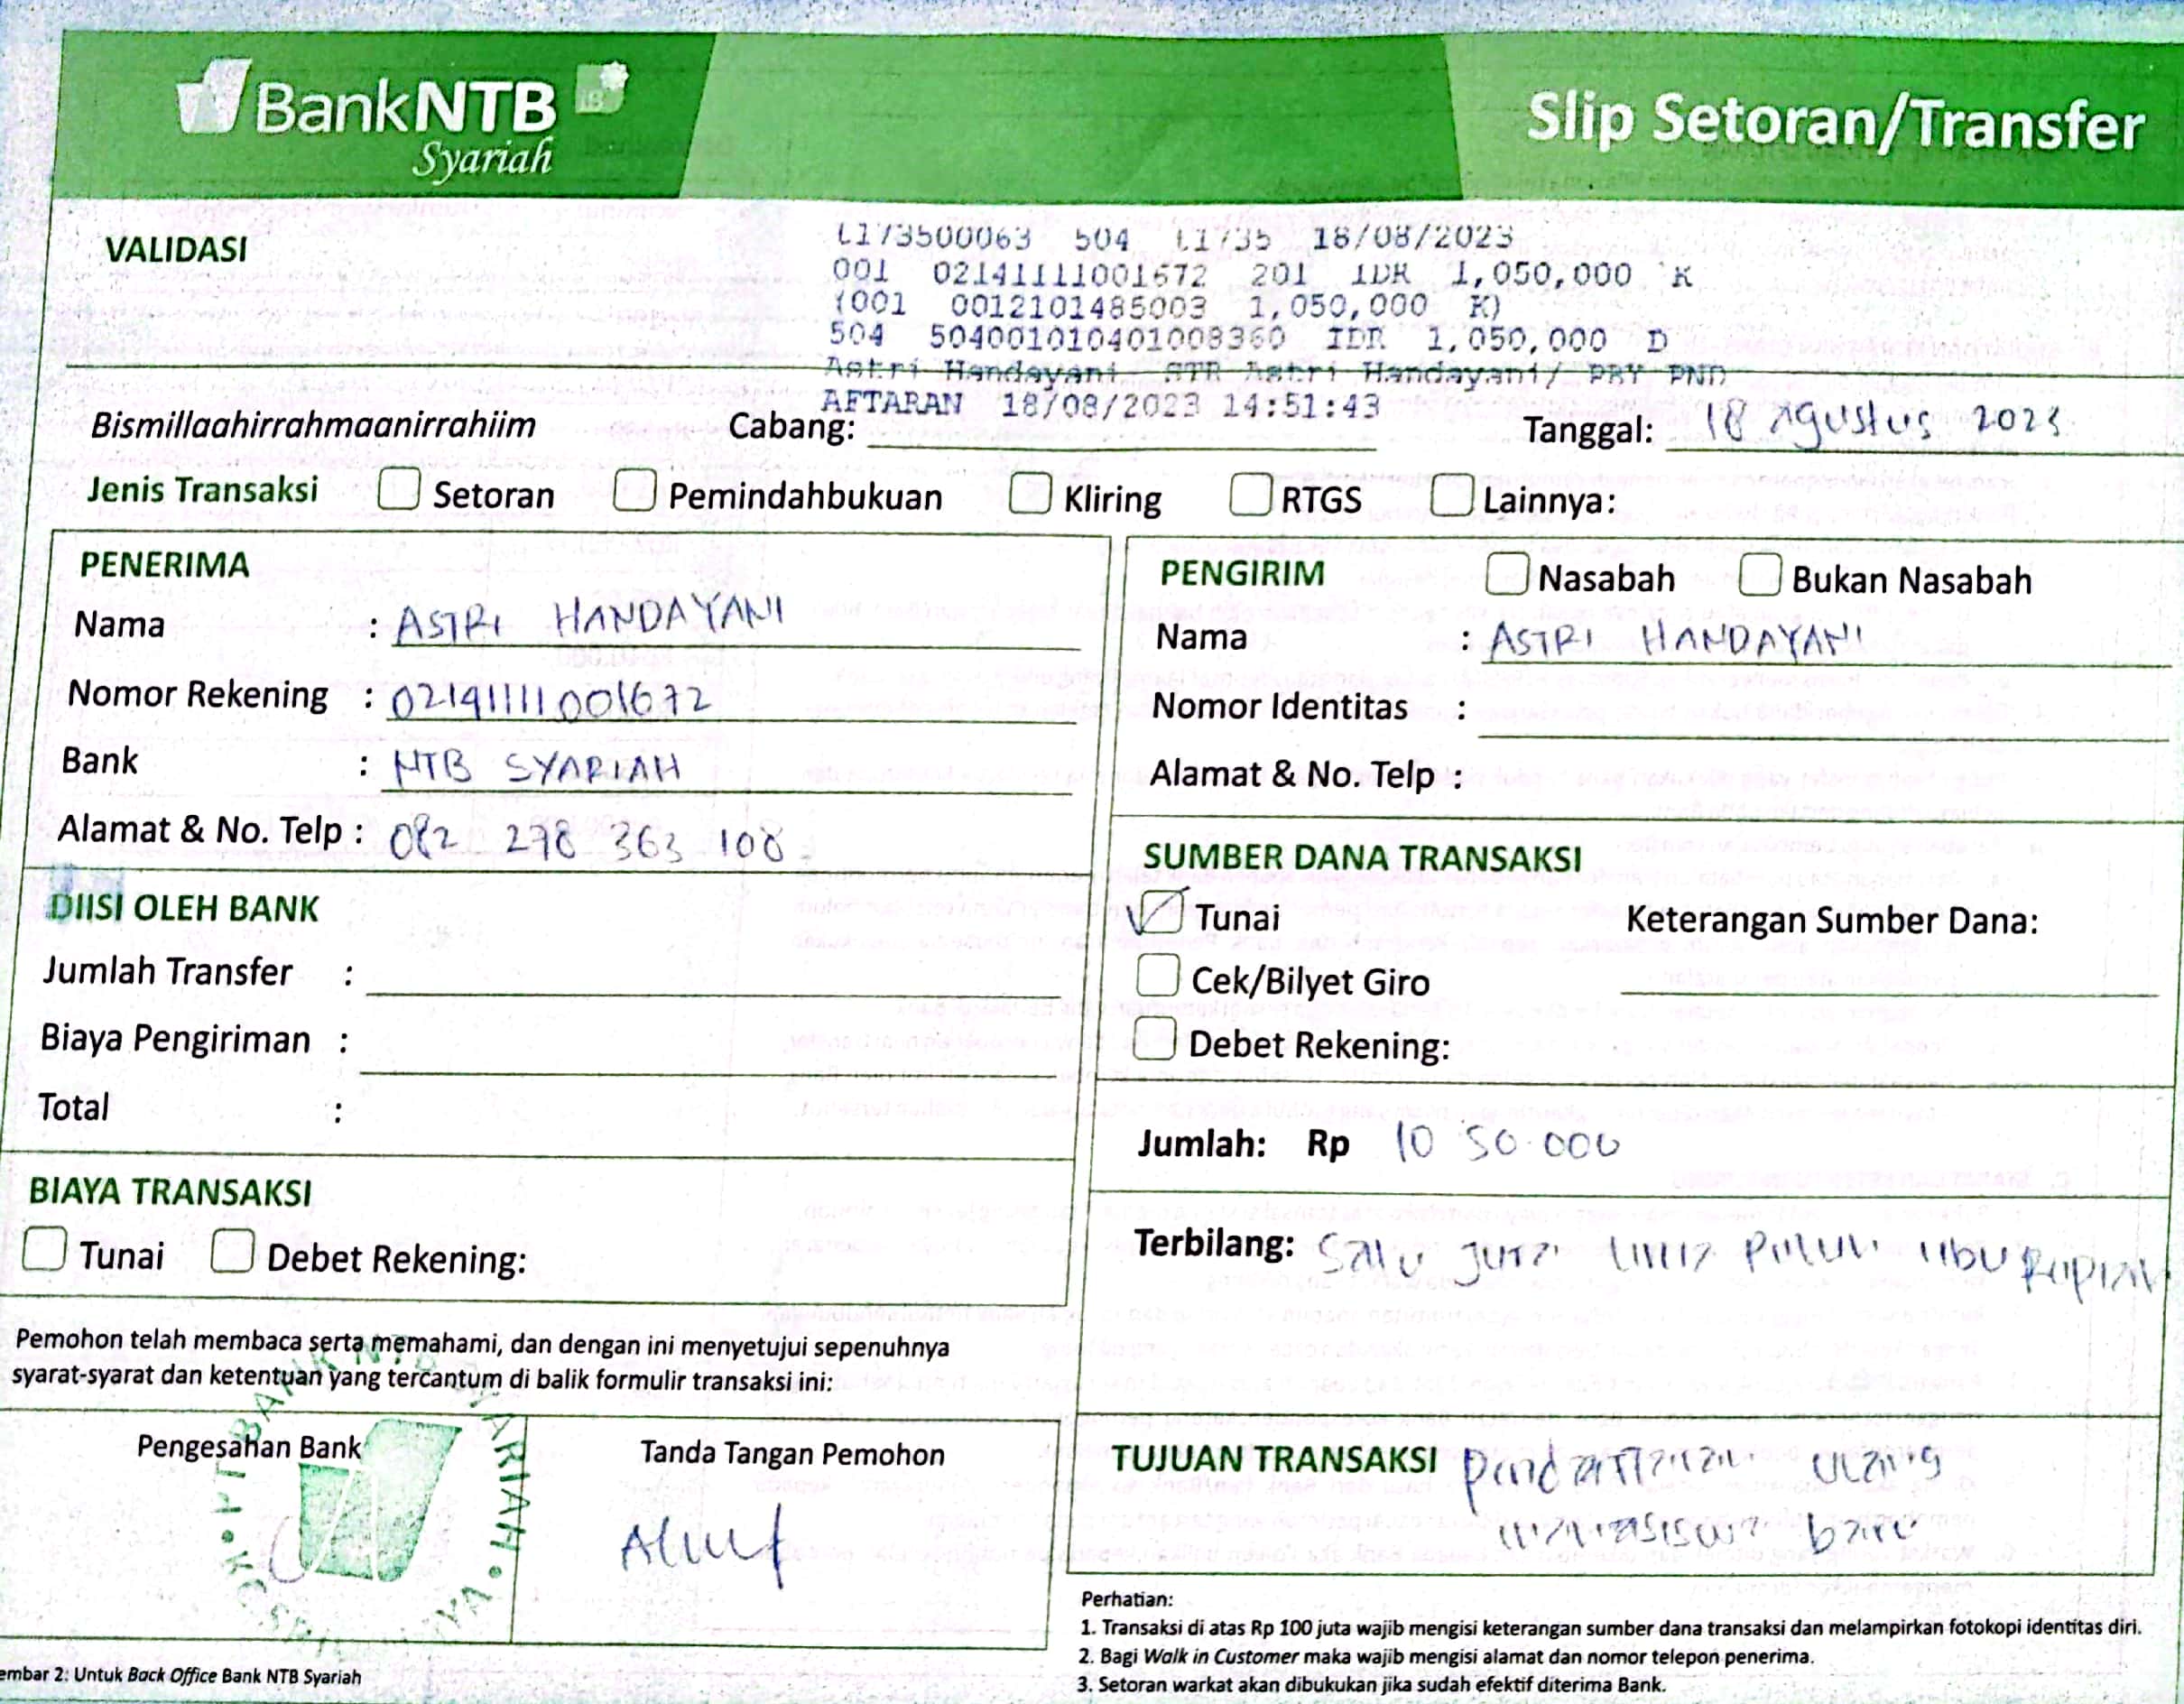 BankNTB
Syariah
Slip Setoran/Transfer
VALIDASI
L173500063 504 L1735 18/08/2023
001 02141111001672 201 IDR 1,050,000 K
(001 0012101485003 1,050,000 K)
504 504001010401008360 IDR 1,050,000 D
Astri Handayani STR Astri Handayani/ PBY PND
AFTARAN 18/08/2023 14:51:43
Bismillaahirrahmaanirrahiim Cabang: Tanggal: 18 Agustus 2023
Jenis Transaksi Setoran Pemindahbukuan Kliring RTGS Lainnya:
PENERIMA
Nama : ASTRI HANDAYANI
Nomor Rekening : 02141111001672
Bank : NTB SYARIAH
Alamat & No. Telp : 082 278 363 108
DIISI OLEH BANK
Jumlah Transfer :
Biaya Pengiriman :
Total :
BIAYA TRANSAKSI
Tunai Debet Rekening:
Pemohon telah membaca serta memahami, dan dengan ini menyetujui sepenuhnya
syarat-syarat dan ketentuan yang tercantum di balik formulir transaksi ini:
Pengesahan Bank
PT BANK NTB SYARIAH
Tanda Tangan Pemohon
embar 2: Untuk Back Office Bank NTB Syariah
PENGIRIM Nasabah Bukan Nasabah
Nama : ASTRI HANDAYANI
Nomor Identitas :
Alamat & No. Telp :
SUMBER DANA TRANSAKSI
Tunai Keterangan Sumber Dana:
Cek/Bilyet Giro
Debet Rekening:
Jumlah: Rp 10 50.000
Terbilang: Satu Juta lima Puluh ribu Rupiah
TUJUAN TRANSAKSI Pendaftaran ulang
mahasiswa baru
Perhatian:
1. Transaksi di atas Rp 100 juta wajib mengisi keterangan sumber dana transaksi dan melampirkan fotokopi identitas diri.
2. Bagi Walk in Customer maka wajib mengisi alamat dan nomor telepon penerima.
3. Setoran warkat akan dibukukan jika sudah efektif diterima Bank.